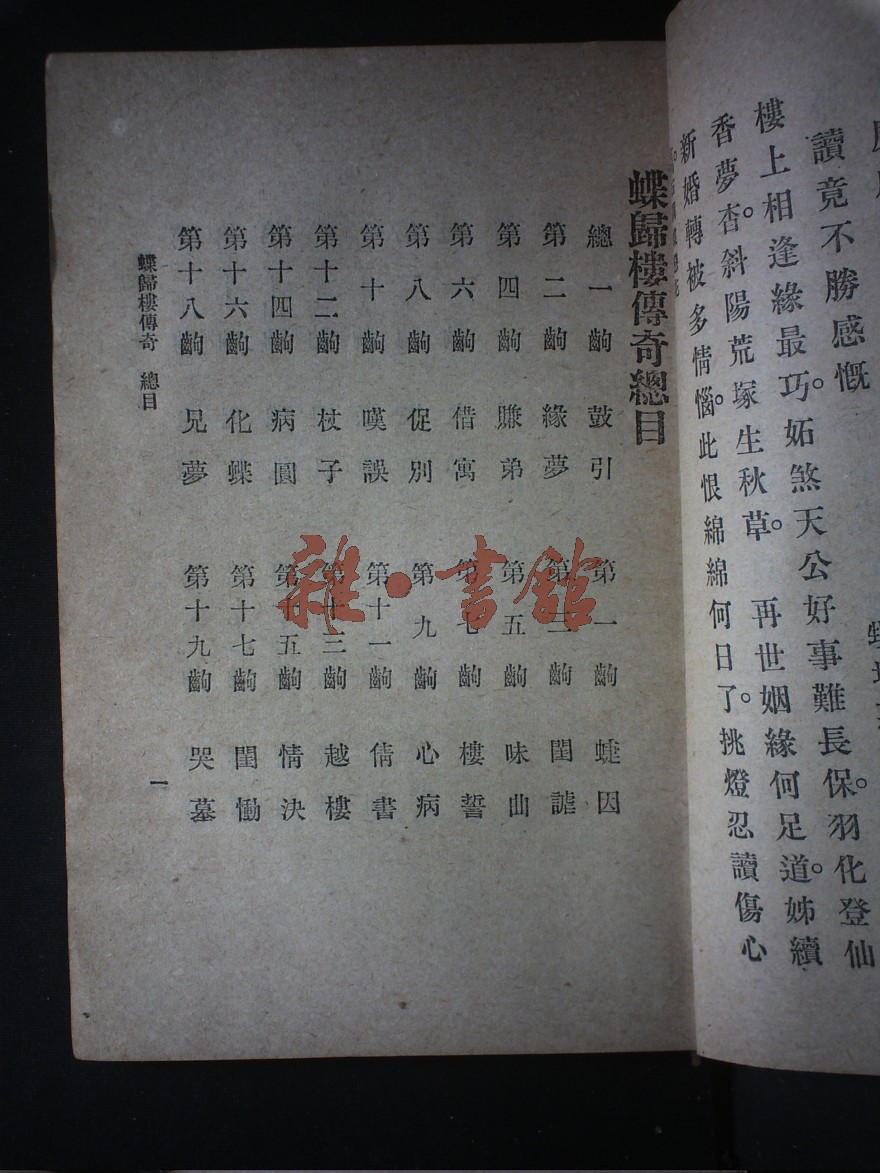 讀竟不勝感慨
樓上相逢緣最巧。妬煞天公好事難長保。羽化登仙
香夢杳。斜陽荒塚生秋草。　再世姻緣何足道。姊續
新婚轉被多情惱。此恨綿綿何日了。挑燈忍讀傷心
蝶歸樓傳奇總目
總一齣　鼓引　第一齣　蜨因
第二齣　緣夢　第三齣　閨謔
第四齣　賺弟　第五齣　味曲
第六齣　借寓　第七齣　樓誓
第八齣　促別　第九齣　心病
第十齣　嘆誤　第十一齣　倩書
第十二齣　杖子　第十三齣　越樓
第十四齣　病圓　第十五齣　情決
第十六齣　化蝶　第十七齣　閨慟
第十八齣　兄夢　第十九齣　哭墓
蝶歸樓傳奇　總目　一
雜·書館